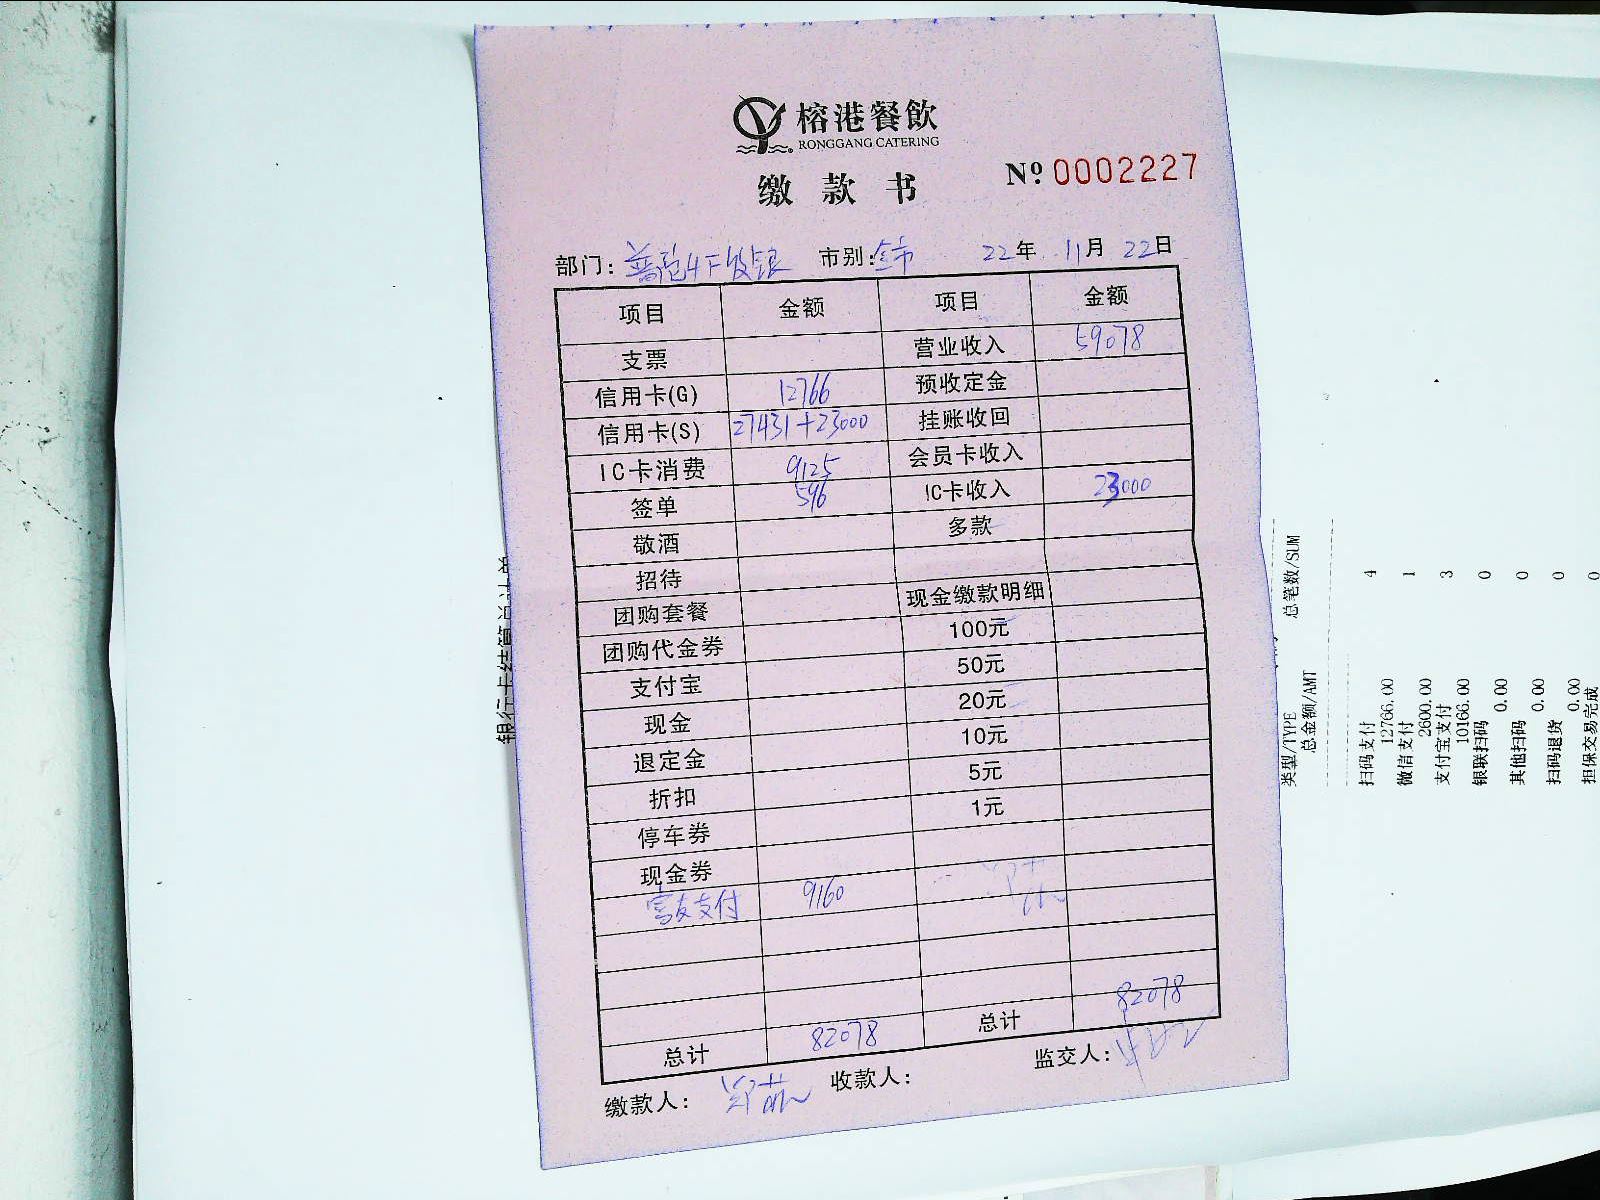 榕港餐飲
RONGGANG CATERING
缴款书
Nº 0002227
部门: 市别:全市 22年 11月 22日
项目 金额 项目 金额
支票 营业收入 59078
信用卡(G) 12766 预收定金
信用卡(S) 27431+23000 挂账收回
IC卡消费 9125 会员卡收入
签单 596 IC卡收入 23000
敬酒 多款
招待
团购套餐 现金缴款明细
团购代金券 100元
支付宝 50元
现金 20元
退定金 10元
折扣 5元
停车券 1元
现金券
富友支付 9160
总计 82078 总计 82078
缴款人: 收款人: 监交人:
类型/TYPE 总笔数/SUM
总金额/AMT
扫码支付 4
12766.00
微信支付 1
2600.00
支付宝支付 3
10166.00
银联扫码 0
0.00
其他扫码 0
0.00
扫码退货 0
0.00
担保交易完成 0